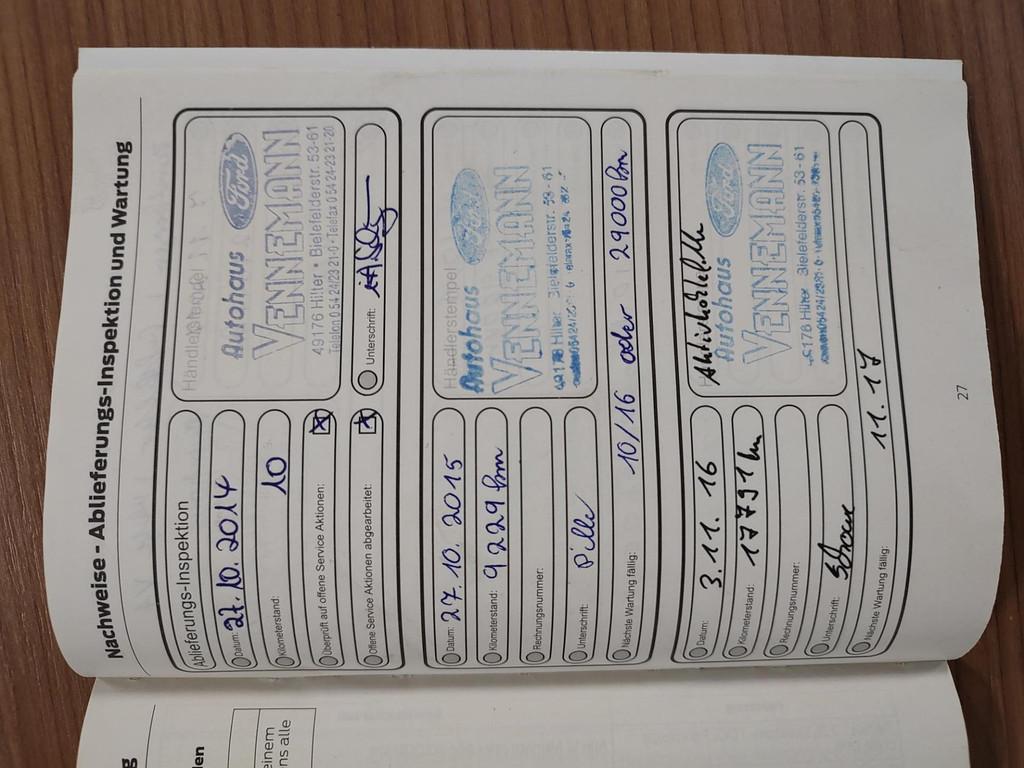 Nachweise - Ablieferungs-Inspektion und Wartung
Ablieferungs-Inspektion
Datum: 27.10.2014
Kilometerstand: 10
Überprüft auf offene Service Aktionen:
Offene Service Aktionen abgearbeitet:
Händlerstempel
Autohaus Ford
VENNEMANN
49176 Hilter • Bielefelderstr. 53-61
Telefon 0 54 24/23 21-0 • Telefax 0 54 24-23 21-20
Unterschrift:
Datum: 27.10.2015
Kilometerstand: 9229 km
Rechnungsnummer:
Unterschrift: Pille
Nächste Wartung fällig: 10/16 oder 29000 km
Händlerstempel
Autohaus Ford
VENNEMANN
49176 Hilter Bielefelderstr. 53-61
Datum: 3.11.16
Kilometerstand: 17791 km
Rechnungsnummer:
Unterschrift:
Nächste Wartung fällig: 11.17
Autohaus Ford
VENNEMANN
49176 Hilter Bielefelderstr. 53-61
27
einem
ns alle
den
g